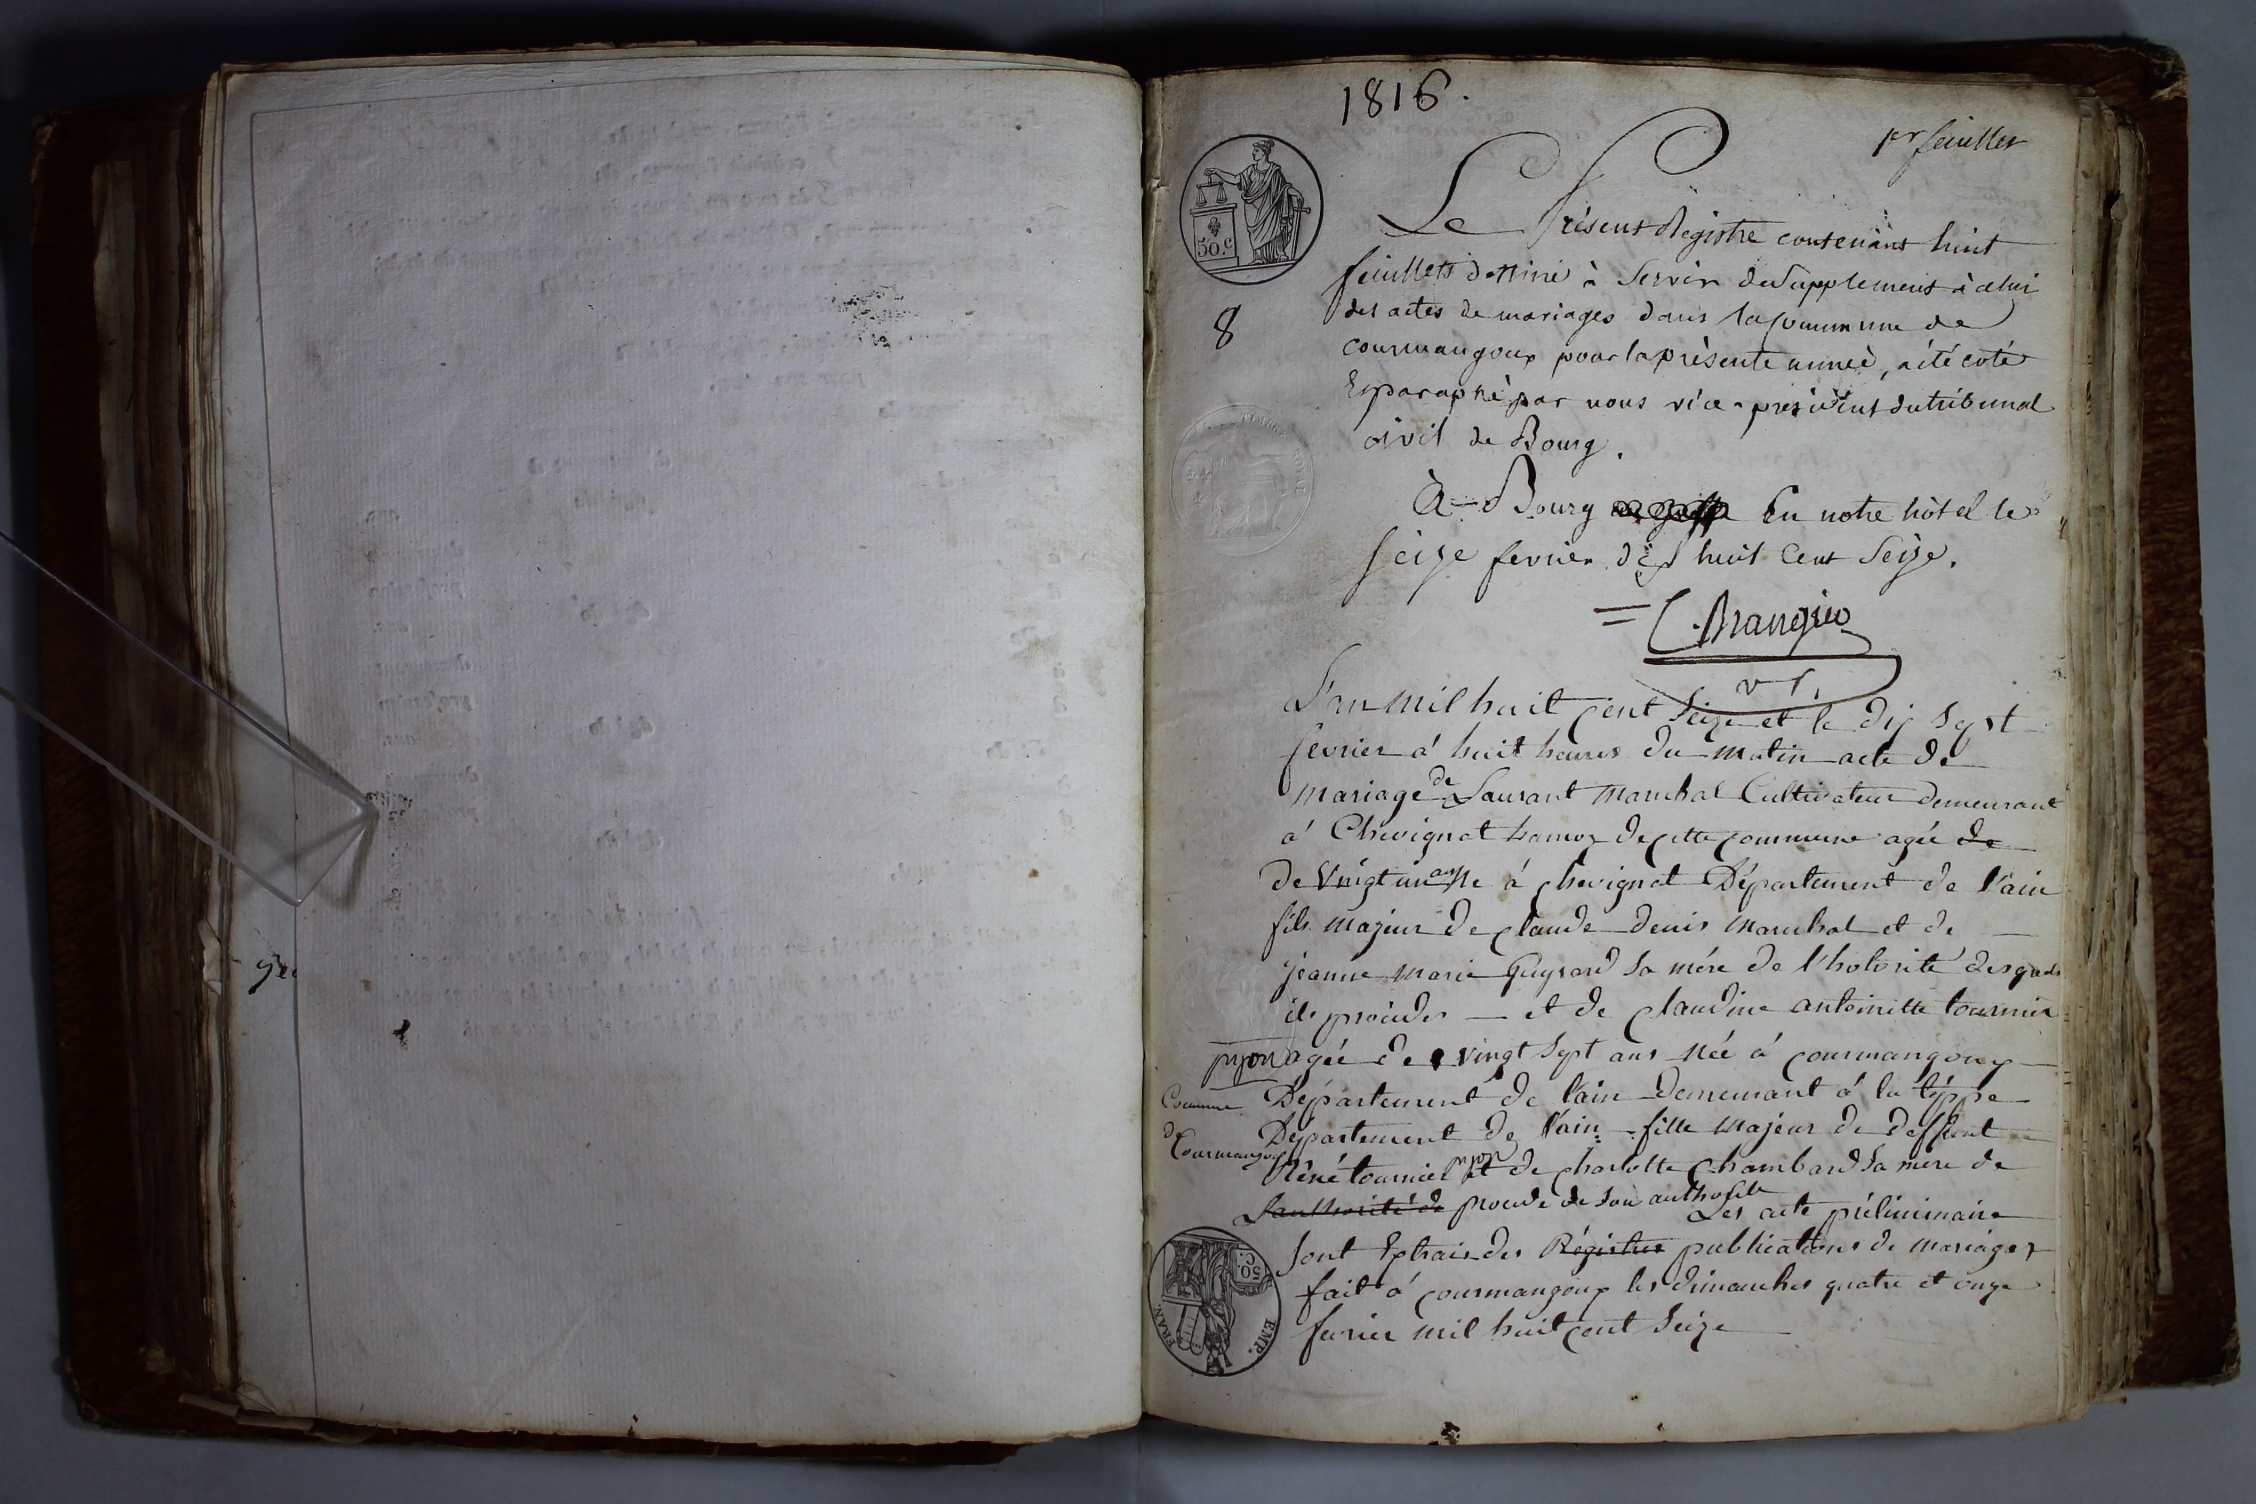 1816.
1er feuillet
50.c
Le Présent Régistre contenant huit
feuillets destiné à Servir de Supplement à celui
8
des actes de mariages dans la Commune de
courmangoux pour la présente année, a été coté
Et paraphé par nous vice-president du tribunal
civil de Bourg.
À Bourg En notre hôtel le
Seize fevrier dix huit Cent Seize.
v. p.
L'an mil huit cent Seize et le dix Sept
fevrier á huit heures du matin acte de
mariage de Laurant marechal Cultivateur demeurant
á Chevignat hamox de cette commune agée de
de Vingt un ans Ne á chevignat Département de l'ain
fils majeur de claude denis marechal et de
jeanne marie Guyrard Sa mére de l'hotorité desquels
ils procedes — et de claudine antoinette tournier
pyon agée de vingt Sept ans Née á courmangoux
Département de l'ain demeurant á la téppe
Commune
de
Courmangoux
Département de l'ain fille majeur de deffunt
Réné tournier pyon et de charlotte Chambard Sa mere de
L'authorité de procede de Son authorité Les acte préliminaire
Sont Extrais des Régistres publications de mariages
fait á courmangoux les dimanches quatre et onze
fevrier mil huit cent Seize
50. C.
EMP.
FRAN.